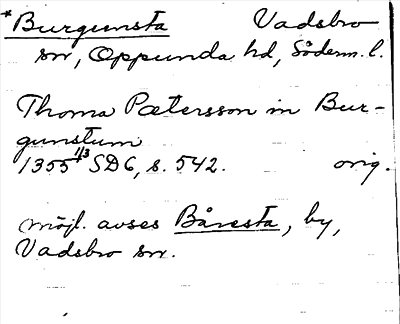 *Burgunsta Vadsbro
sn, Oppunda hd, Söderm. l.
Thoma Pætersson in Bur-
gunstum
1355 1/3 SD6, s. 542. orig.
möjl. avses Båresta, by,
Vadsbro sn.